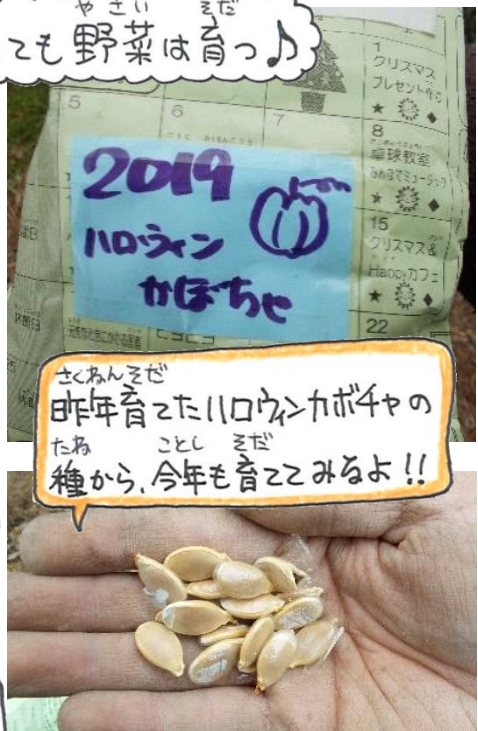 やさい そだ
ても野菜は育つ♪
1
クリスマス
プレゼント作り
5
6
7
8
卓球教室
15
クリスマス&
Happyカフェ
22
2019
ハロウィン
かぼちゃ
さくねんそだ
昨年育てたハロウィンカボチャの
たね ことし そだ
種から、今年も育ててみるよ!!